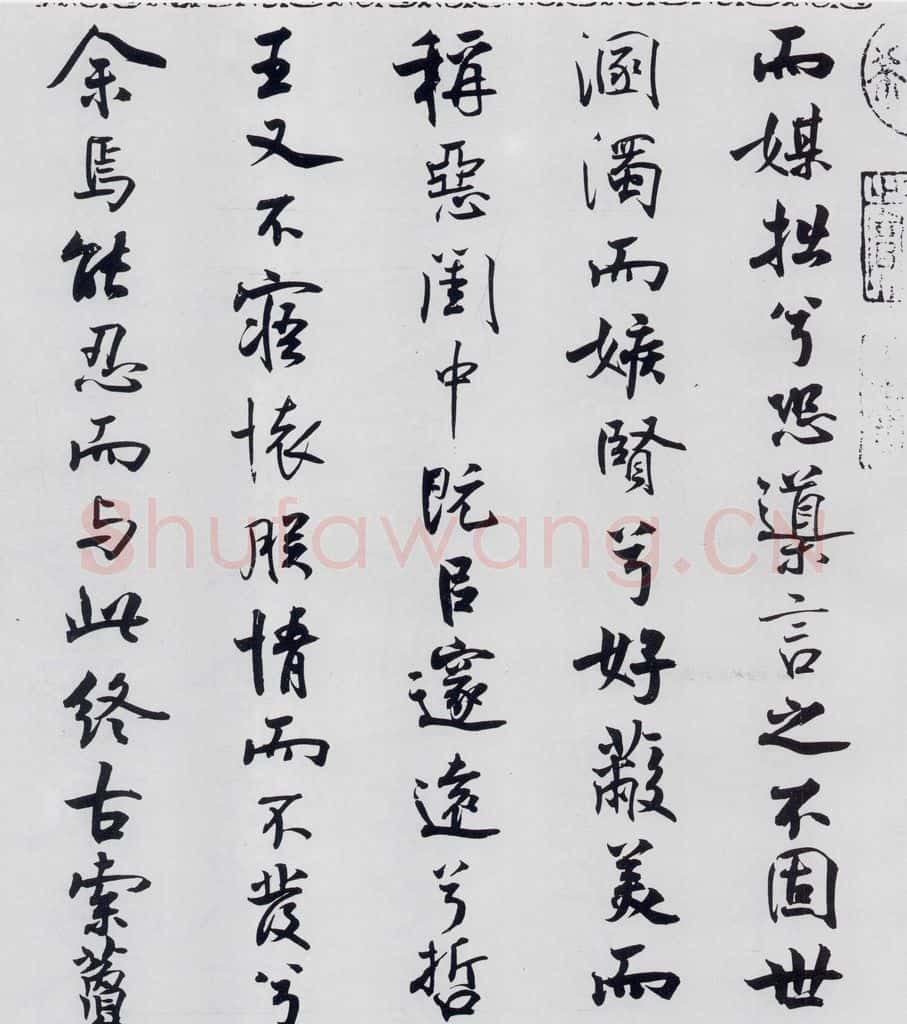 而媒拙兮恐導言之不固世
溷濁而嫉賢兮好蔽美而
稱惡閨中既㠯邃遠兮哲
王又不寤懷朕情而不發兮
余焉能忍而与此終古索藑
Shufawang.CN